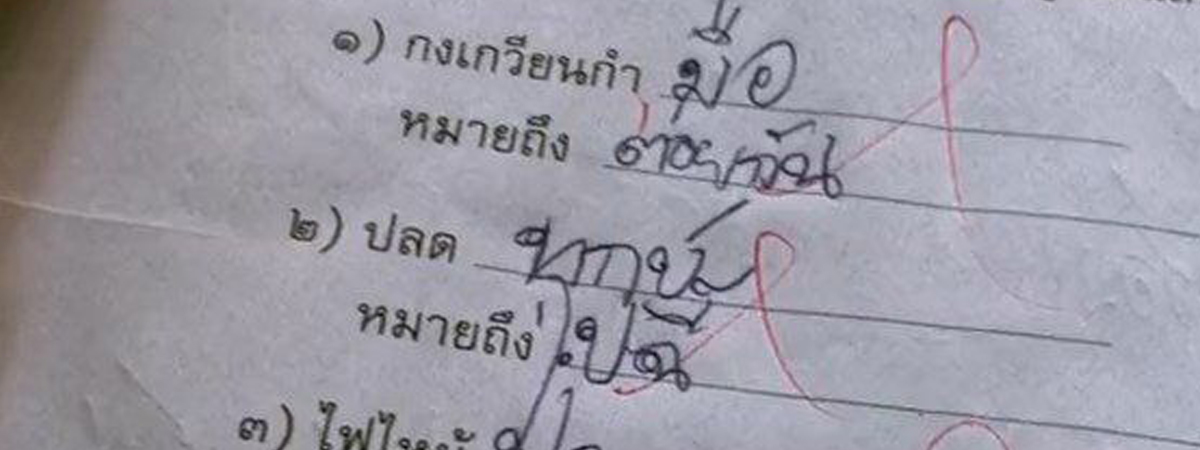 ๑) กงเกวียนกำ มือ
หมายถึง
๒) ปลด ทุกข์
หมายถึง ไปฉี่
๓) ไฟไหม้